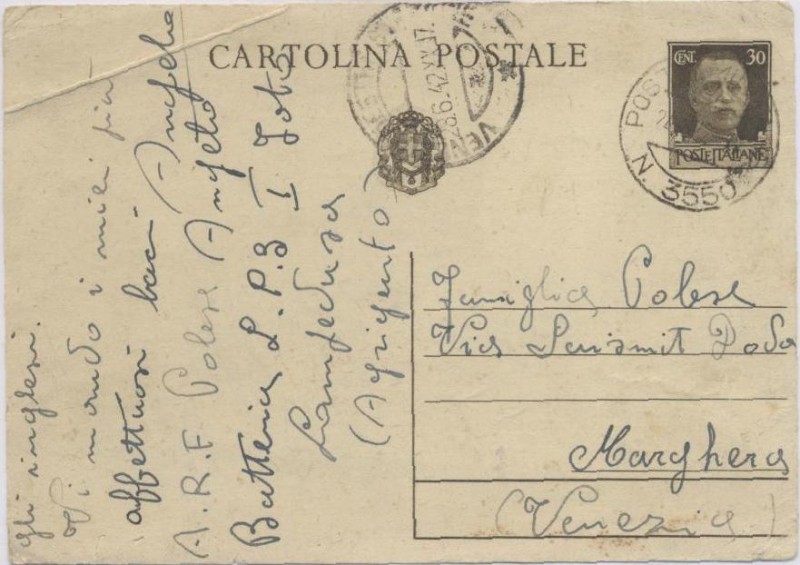 CARTOLINA POSTALE
CENT. 30
POSTE ITALIANE
POST
N. 3550
VEN
8.6.42.XX.17.
Famiglia Polese
Via Seismit Doda
Marghera
(Venezia)
gli inglesi.
Vi mando i miei più
affettuosi baci Angelo
A.R.F Polese Angelo
Batteria L.P.3 I
Lampedusa
(Agrigento)